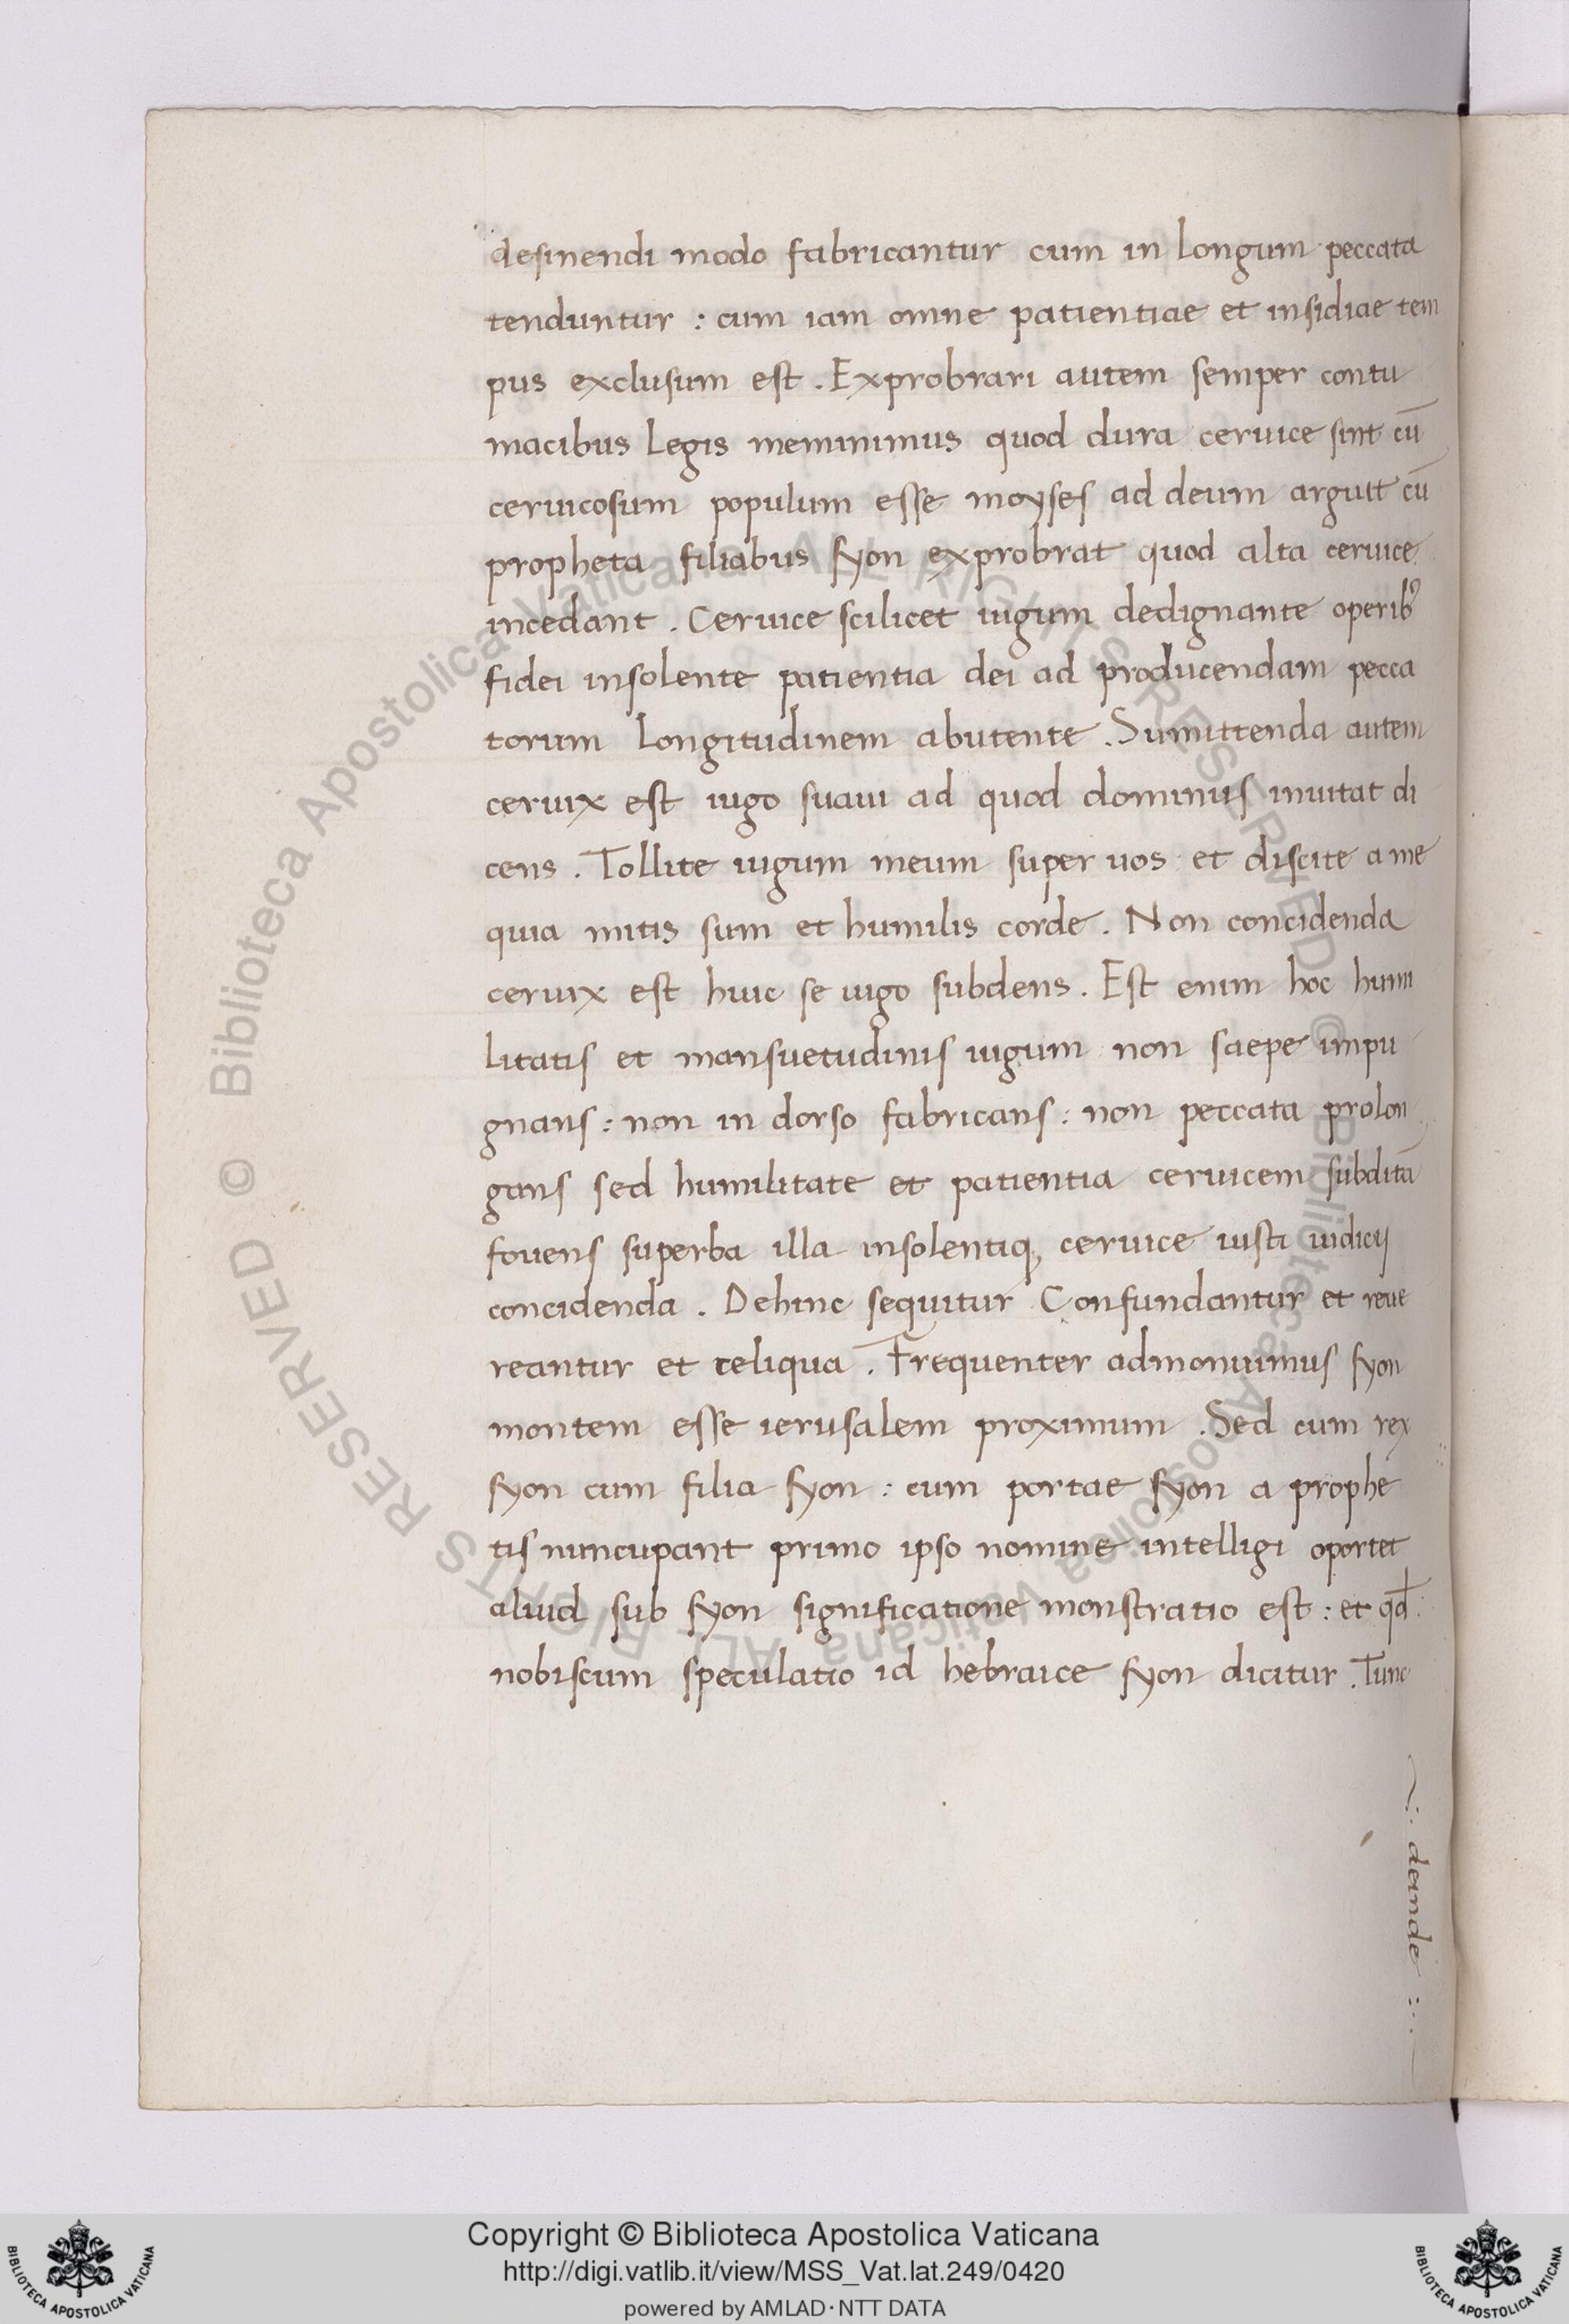 desinendi modo fabricantur cum in longum peccata
tenduntur : cum iam omne patientiae et insidiae tem
pus exclusum est . Exprobrari autem semper contu
macibus legis meminimus quod dura ceruice sint cū
ceruicosum populum esse moyses ad deum arguit cū
propheta filiabus syon exprobrat quod alta ceruice
incedant . Ceruice scilicet iugum dedignante operibꝰ
fidei insolente patientia dei ad producendam pecca
torum longitudinem abutente . Sumittenda autem
ceruix est iugo suaui ad quod dominus inuitat di
cens . Tollite iugum meum super uos et discite a me
quia mitis sum et humilis corde . Non concidenda
ceruix est huic se iugo subdens . Est enim hoc humi
litatis et mansuetudinis iugum non saepe impu
gnans : non in dorso fabricans : non peccata prolon
gans sed humilitate et patientia ceruicem subditā
fouens superba illa insolentiq; ceruice iusti iudicij
concidenda . Dehinc sequitur Confundantur et reue
reantur et reliqua . Frequenter admonuimus syon
montem esse ierusalem proximum . Sed cum rex
syon cum filia syon : cum portae syon a prophe
tis nuncupant primo ipso nomine intelligi oportet
aliud sub syon significatione monstratio est : et qđ
nobiscum speculatio id hebraice syon dicitur . Tunc
deinde
© Biblioteca Apostolica Vaticana ALL RIGHTS RESERVED
© Biblioteca Apostolica Vaticana ALL RIGHTS RESERVED
Copyright © Biblioteca Apostolica Vaticana
http://digi.vatlib.it/view/MSS_Vat.lat.249/0420
powered by AMLAD·NTT DATA
BIBLIOTECA APOSTOLICA VATICANA
BIBLIOTECA APOSTOLICA VATICANA